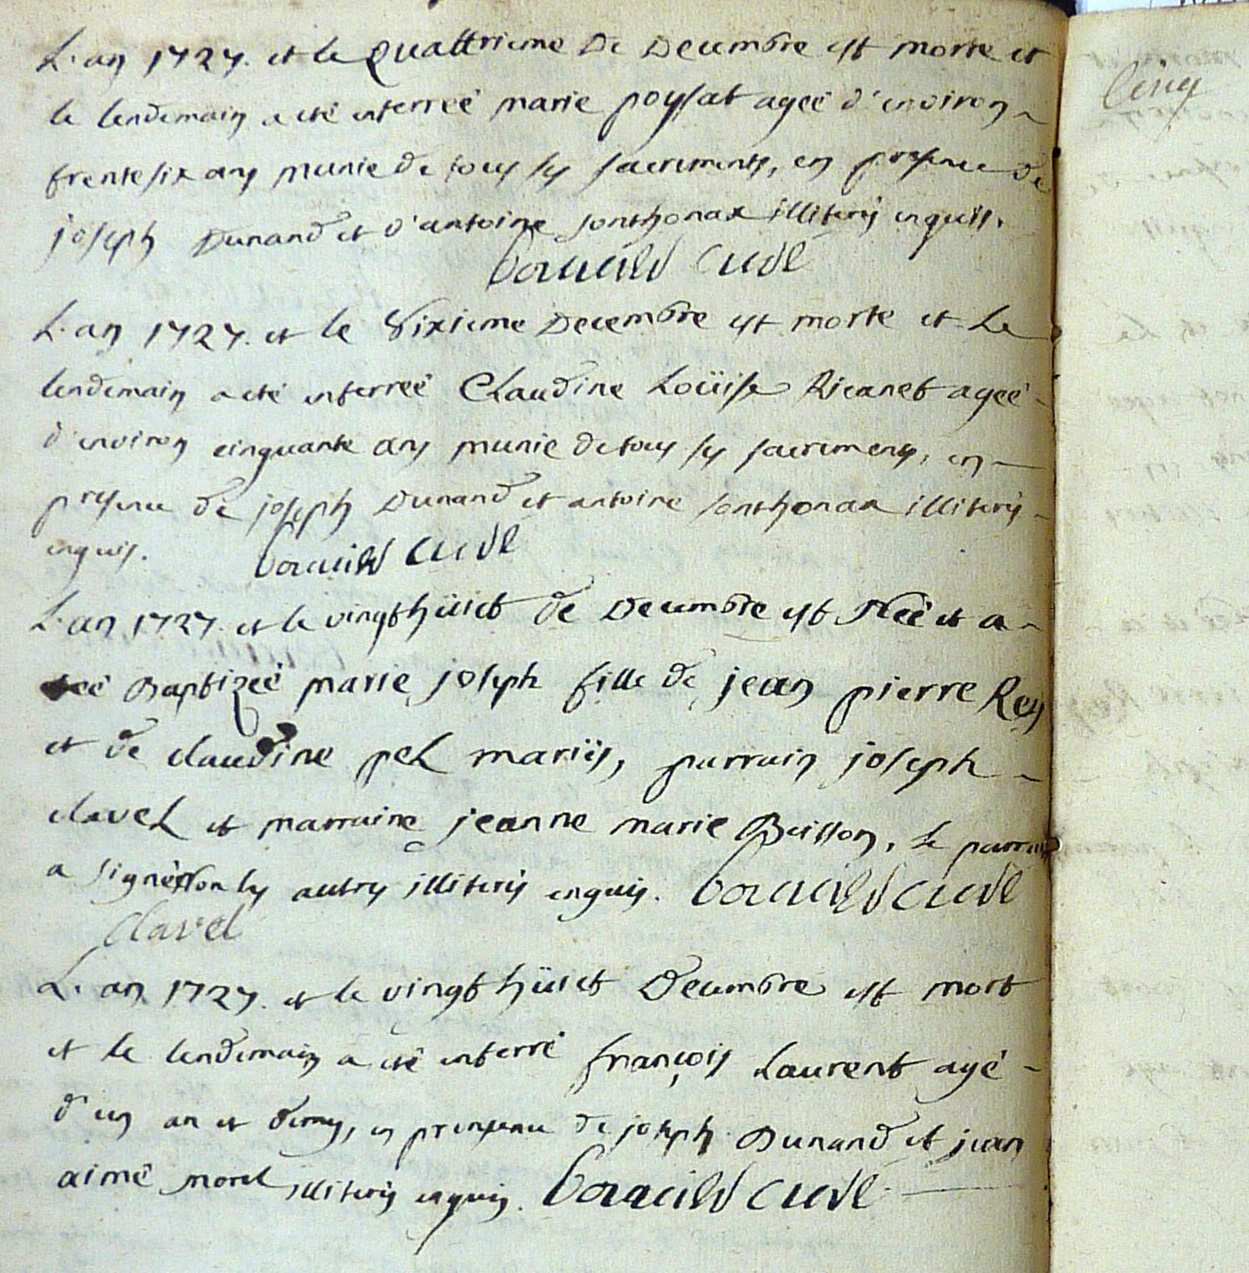 L'an 1727. et le quattrieme de decembre est morte et
le lendemain a eté enterreé marie poysat ageé d'environ
trente six ans munie de tous ses sacrements, en presence de
joseph Dunand et d'antoine sonthonax illiterés enquis.
curé
L'an 1727. et le sixieme decembre est morte et le
lendemain a eté enterreé Claudine Loüise Ricanet ageé
d'environ cinquante ans munie de tous ses sacremens, en
presence de joseph Dunand et antoine sonthonax illiterés
enquis. curé
L'an 1727. et le vingt hüict de decembre est Neé et a
eteé Baptizeé marie joseph fille de jean pierre Rey
et de claudine pel mariés, parrain joseph
clavel et marraine jeanne marie Buisson, le parrain
a signé non les autres illiterés enquis. curé
Clavel
L'an 1727. et le vingt hüict decembre est mort
et le lendemain a eté enterré françois Laurent agé
d'un an et demy, en presence de joseph Dunand et jean
aimé morel illiterés enquis. curé